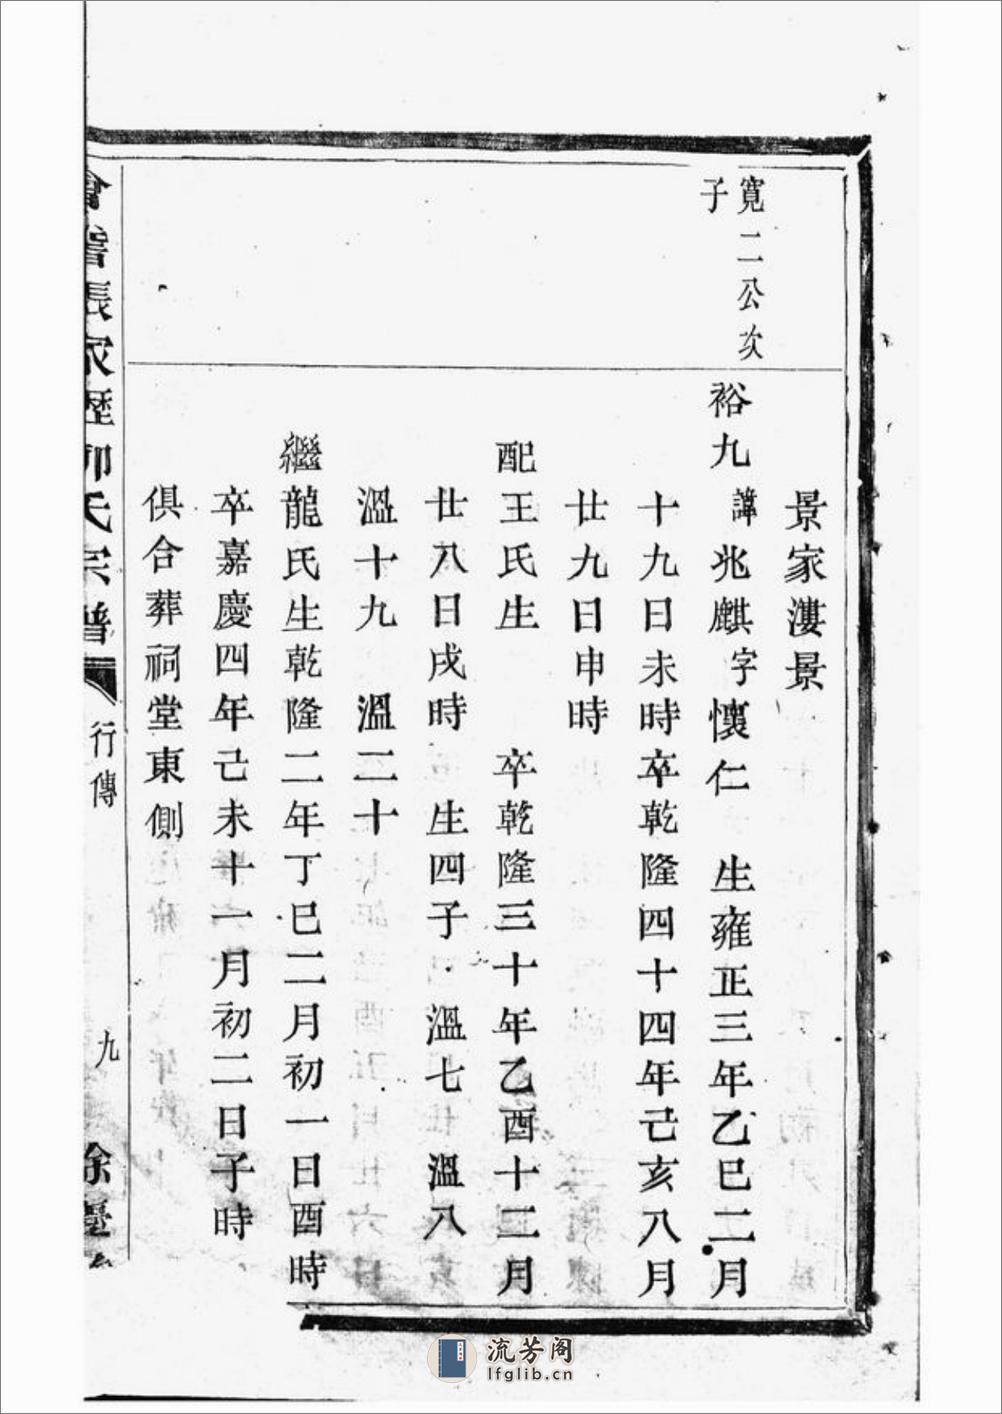 景家漊景
寬二公次
子
裕九諱兆麒字懷仁 生雍正三年乙巳二月
十九日未時卒乾隆四十四年己亥八月
廿九日申時
配王氏生 卒乾隆三十年乙酉十二月
廿八日戌時 生四子 溫七 溫八
溫十九 溫二十
繼龍氏生乾隆二年丁巳二月初一日酉時
卒嘉慶四年己未十一月初二日子時
俱合葬祠堂東側
會稽張家瀝 氏宗譜 行傳 九
流芳阁
lfglib.cn